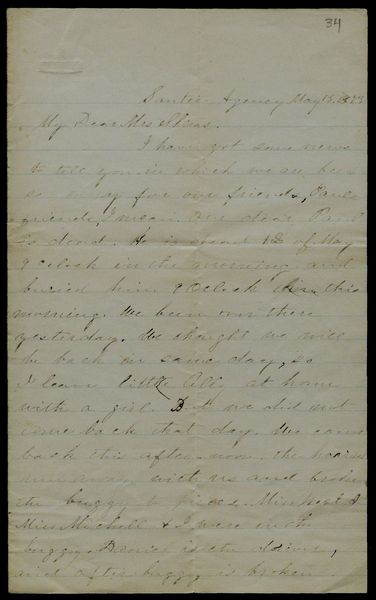 34
Santee Agency May 15, 1883
My Dear Mrs
I have got some news
to tell you in which we are been
so sorry for our friends, Pauls
friends, I mean. Our dear Paul
is dead. He is dead 12 of May
9 oclock in the morning and
buried him 9 Oclock this
morning. We been over there
yesterday. We thought we will
be back in same day, so
I leave little at home
with a girl. But we did not
come back that day. We came
back this after-noon. the
run away with us and broke
the buggy to pieces. Miss &
Miss Mitchell & I were in the
buggy. is the driver,
and after buggy is broken